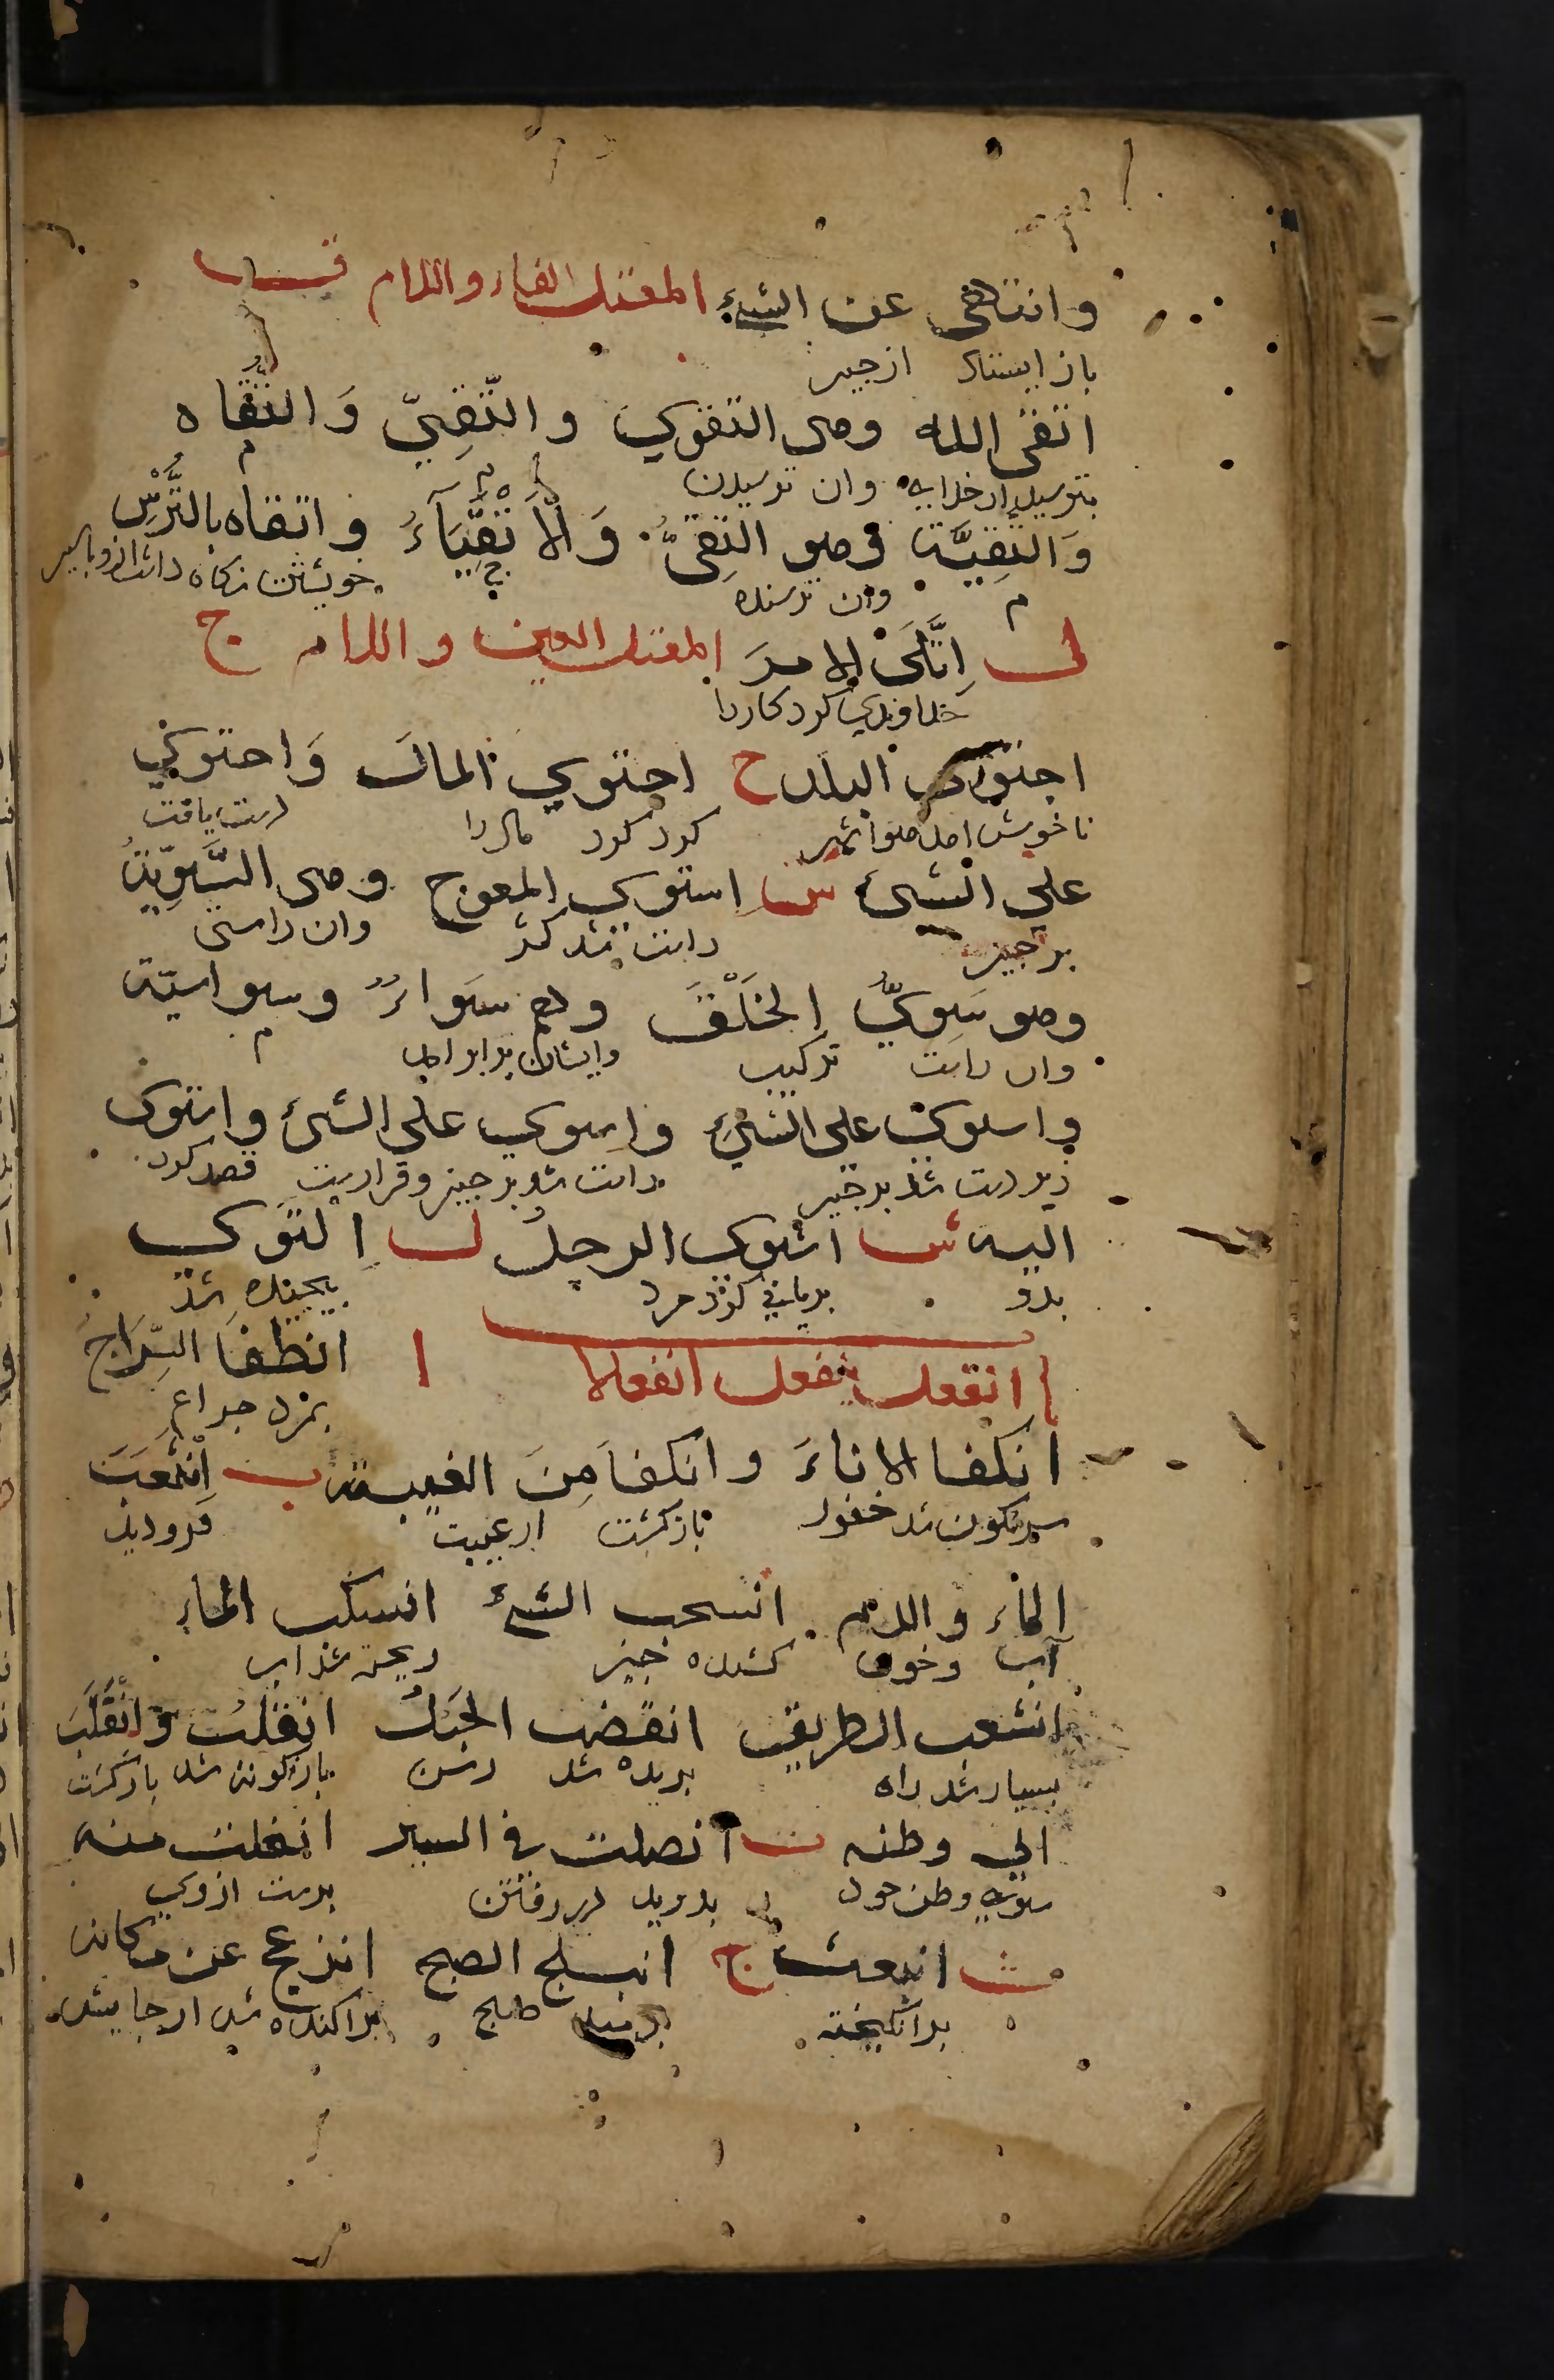 وانتهى عن الشيء المعتل الفاء واللام ق
باز ايستاد ازجيز
اتقى الله وهى التقوي والتّقيّ وَالتُّقَاه
بترسيد از خدايه وان ترسيدن
وَالتَّقِيَّة وهو التقيُّ وَالاَتْقِيَآءُ واتقاه بالتُّرْسِ
وان ترسنده خويشتن نكاه داشت ازو بالسپر
ل اِتَّلَى الامرَ المعتل العين واللام ج
خداوندي كرد كاررا
اجتوى البلد ح احتوي المال وَاحتوي
ناخوش امد هوا شهر كرد كرد مال را دست يافت
علي الشئ س استوي المعوج وهى السَّوِيّةُ
بر جيز راست شد كژ وان راستى
وهو سَوِيُّ الخَلْقَ وهم سَواءٌ وسواسيّة
وان راست تركيب وايشان برابراند
واستوي على الشيء واستوي علي الشئ واستوى
زبر دست شد بر جيز راست شد بر جيز وقرار قصد كرد
اليه ش اشتوى الرجلُ ل اِلتَوي
بدو بريانى كرد مرد پيچيده شد
انفعل ينفعل انفعالا ا انطفَا السِّرَاجُ
بمرد جراغ
انكفا الاناءَ وانكفاَ مِنَ الغيبة ب اِنْثَعَبَ
سرنكون شد خنور بازكشت از غيبت فرودويد
الماء والدم انسحب الشئ انسكب الماء
آب وخون كشيده جيز ريخته شد اب
انشعب الطريق انقضب الحَبلُ انقلبَ وَانْقَلَبَ
بسيار شد راه بريده شد رسن بازكونه شد بازكشت
الي وطنه ت انصلت في السير انفلت منه
سوي وطن خود بدويد در رفتن برست ازوي
ث انبعث ج انبلج الصبح انزعج عن مكانه
برانكيخته بدميد صبح براكنده شد از جايش